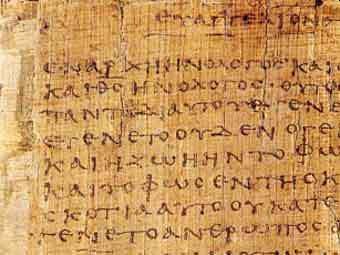 ΕΥΑΓΓΕΛΙΟΝ
ΕΝΑΡΧΗΗΝΟΛΟΓΟϹΚΑΙΟ
ΚΑΙΘϹΗΝΟΛΟΓΟϹ·ΟΥΤΟ
ΠΑΝΤΑΔΙΑΥΤΟΥΕΓΕΝΕ
ΕΓΕΝΕΤΟΟΥΔΕΝΟΓΕ
ΚΑΙΗΖΩΗΗΝΤΟΦΩ
ΚΑΙΤΟΦΩϹΕΝΤΗϹΚ
ϹΚΟΤΙΑΑΥΤΟΟΥΚΑΤΕ
ΕΓΕΝΕΤΟΑΝΘΡΩΠΟϹ